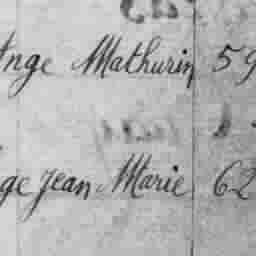 Ange Mathurin 59
ge Jean Marie 62